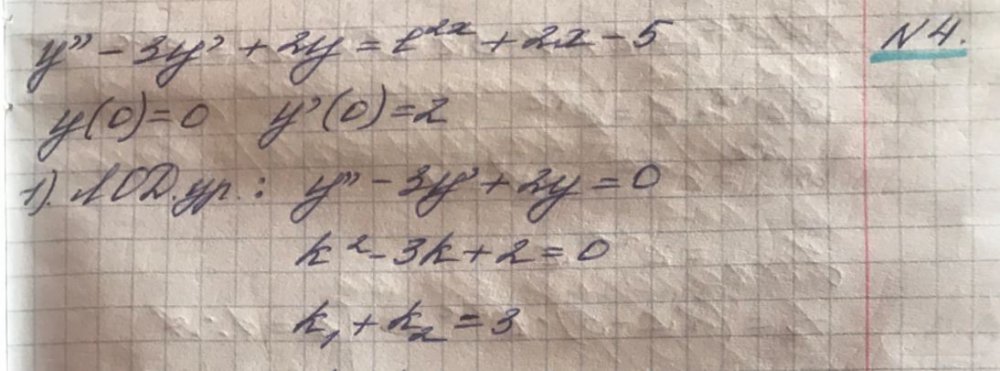 y'' - 3y' + 2y = e^{2x} + 2x - 5 N 4.
y(0)=0 y'(0)=2
1). ЛОД.ур.: y'' - 3y' + 2y = 0
k² - 3k + 2 = 0
k₁ + k₂ = 3